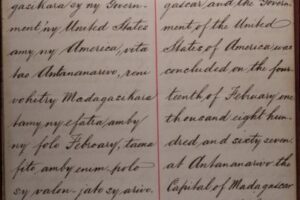 gasikara sy ny Govern-
ment'ny United States
amy ny America, vita
tao Antananarivo, reni
vohitry Madagasikara
tamy ny efatra, amby
ny folo February, taona
fito, amby enim-polo
sy valon-jato sy arivo.
gascar, and the Govern-
ment of the United
States of America was
concluded on the four
teenth of February one
thousand eight hun-
dred and sixty seven
at Antananarivo the
Capital of Madagascar